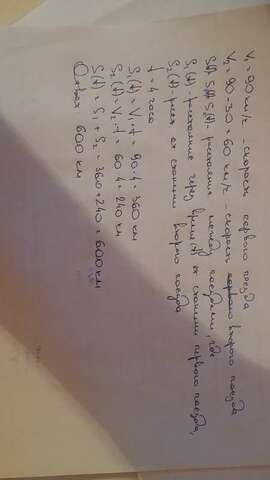 V₁ = 90 км/ч - скорость первого поезда
V₂ = 90 - 30 = 60 км/ч - скорость второго поезда
S(t) - расстояние между поездами, где
S₁(t) - расстояние через время(t) от станции первого поезда,
S₂(t) - расст от станции второго поезда
t = 4 часа
S₁(t) = V₁ · t = 90 · 4 = 360 км
S₂(t) = V₂ · t = 60 · 4 = 240 км
S(t) = S₁ + S₂ = 360 + 240 = 600 км
Ответ 600 км